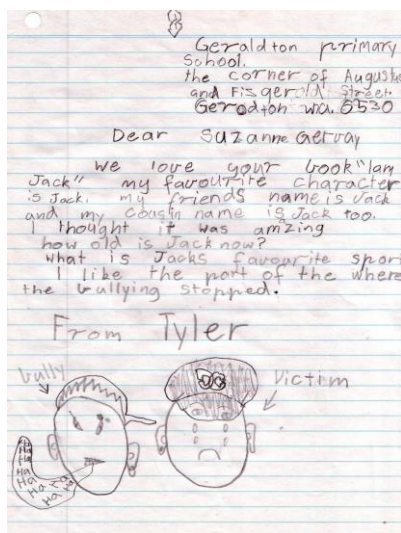 Geraldton primary
School.
the corner of Augustus
and Fisgerald Street.
Gerodton wa. 6530
Dear Suzanne Gervay
We love your book "Iam
Jack" my favourite character
is Jack. my friends name is Jack
and my cousin name is Jack too.
I thought it was amzing
how old is Jack now?
what is Jacks favourite sport
I like the part of the where
the bullying stopped.
From Tyler
bully
Victim
Ha
Ha
Ha
Ha
Ha Ha
Ha